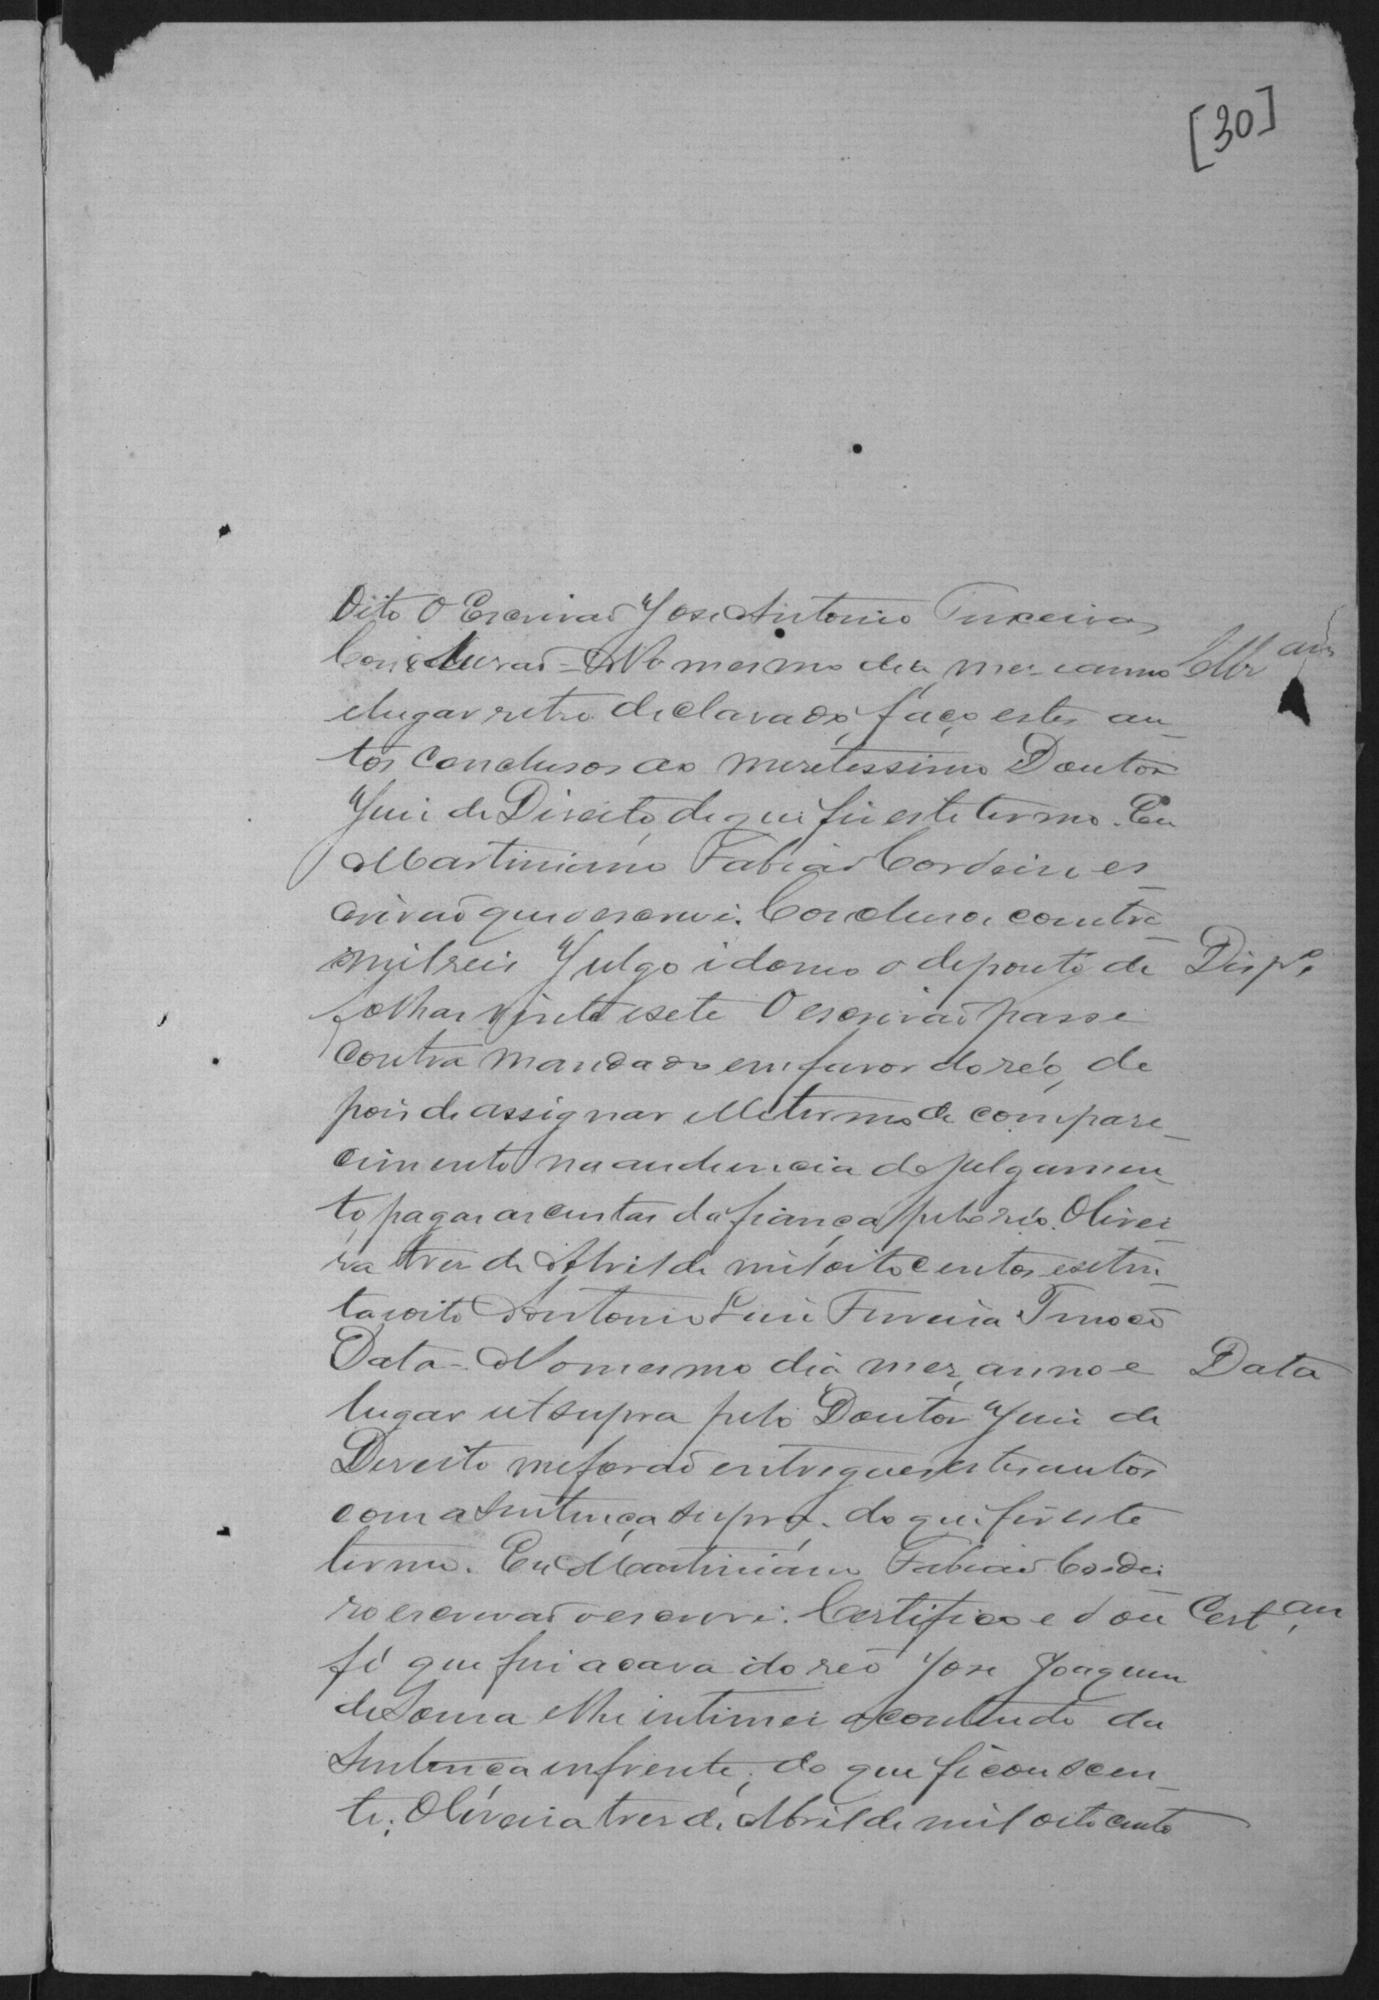 [30]
Oito O Escrivaõ Jose Antonio Teixeira
Concluzaõ = No mesmo dia mes eanno
elugar retro declarado, faço estes au-
tos Conclusos ao meretissimo Doutor
Juiz de Direito, de que fiz este termo. Eu
Martiniano Fabiaõ Cordeiro es-
crivaõ que o escrevi. Conclusos com tre
milreis Julgo idoneo o deposito de
Desp.o
folhas vinte esete O escrivaõ passe
contra mandado em favor do reo, de
pois de assignar elle termo de compare-
cimento na audiencia do julgamen-
to, pagas as custas da fiança pelo reo. Olivei-
ra tres de Abril de mil oito centos e seten-
ta oito Antonio Luiz Ferreira Tinoco
Data = No mesmo dia, mez, anno e
Data
lugar ut supra pelo Doutor Juiz de
Direito me foraõ entregues estes autos
com a sentença supra. do que fiz este
termo. Eu Martiniano Fabiaõ Cordei
ro escrivaõ o escrevi. Certifico e dou
Cert.am
fé que fui a casa do reo Jose Joaquim
de Sousa elhe intimei o contendo da
Sentença enfrente, do que ficou scien-
te, Oliveira tres de Abril de mil oito cento